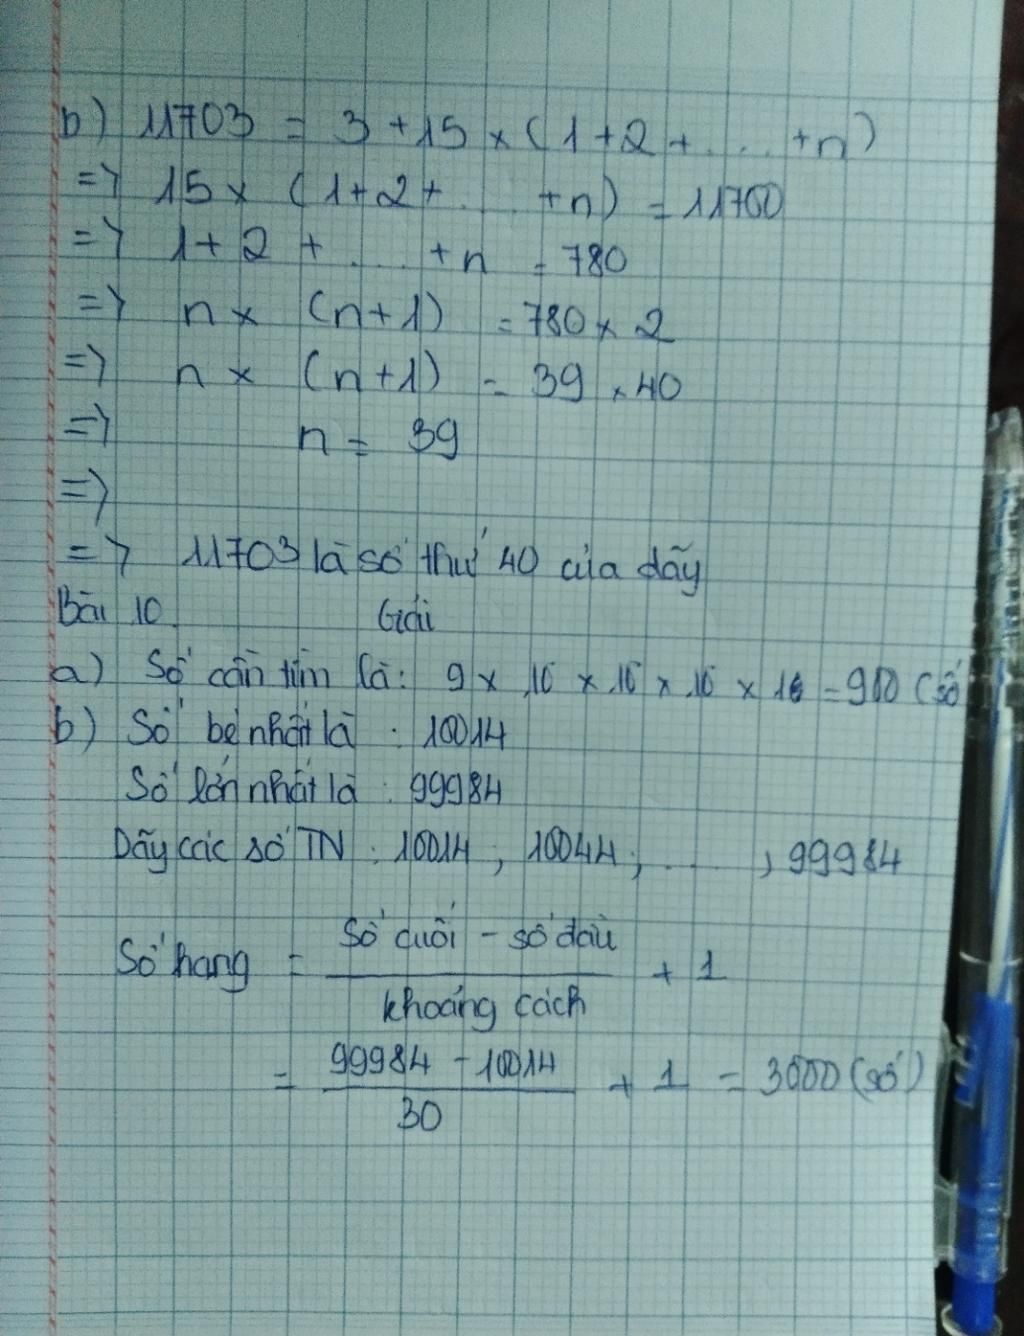 b) 11703 = 3 + 15 × (1 + 2 + .... + n)
=> 15 × (1 + 2 + .... + n) = 11700
=> 1 + 2 + .... + n = 780
=> n × (n + 1) = 780 × 2
=> n × (n + 1) = 39 × 40
=> n = 39
=>
=> 11703 là số thứ 40 của dãy
Bài 10 Giải
a) Số cần tìm là: 9 × 10 × 10 × 10 × 10 = 900 (số
b) Số bé nhất là : 10014
Số lớn nhất là : 99984
Dãy các số TN : 10014 ; 10044 ; ...... ; 99984
Số hang = Số cuối - số đầu / khoảng cách + 1
= 99984 - 10014 / 30 + 1 = 3000 (số)